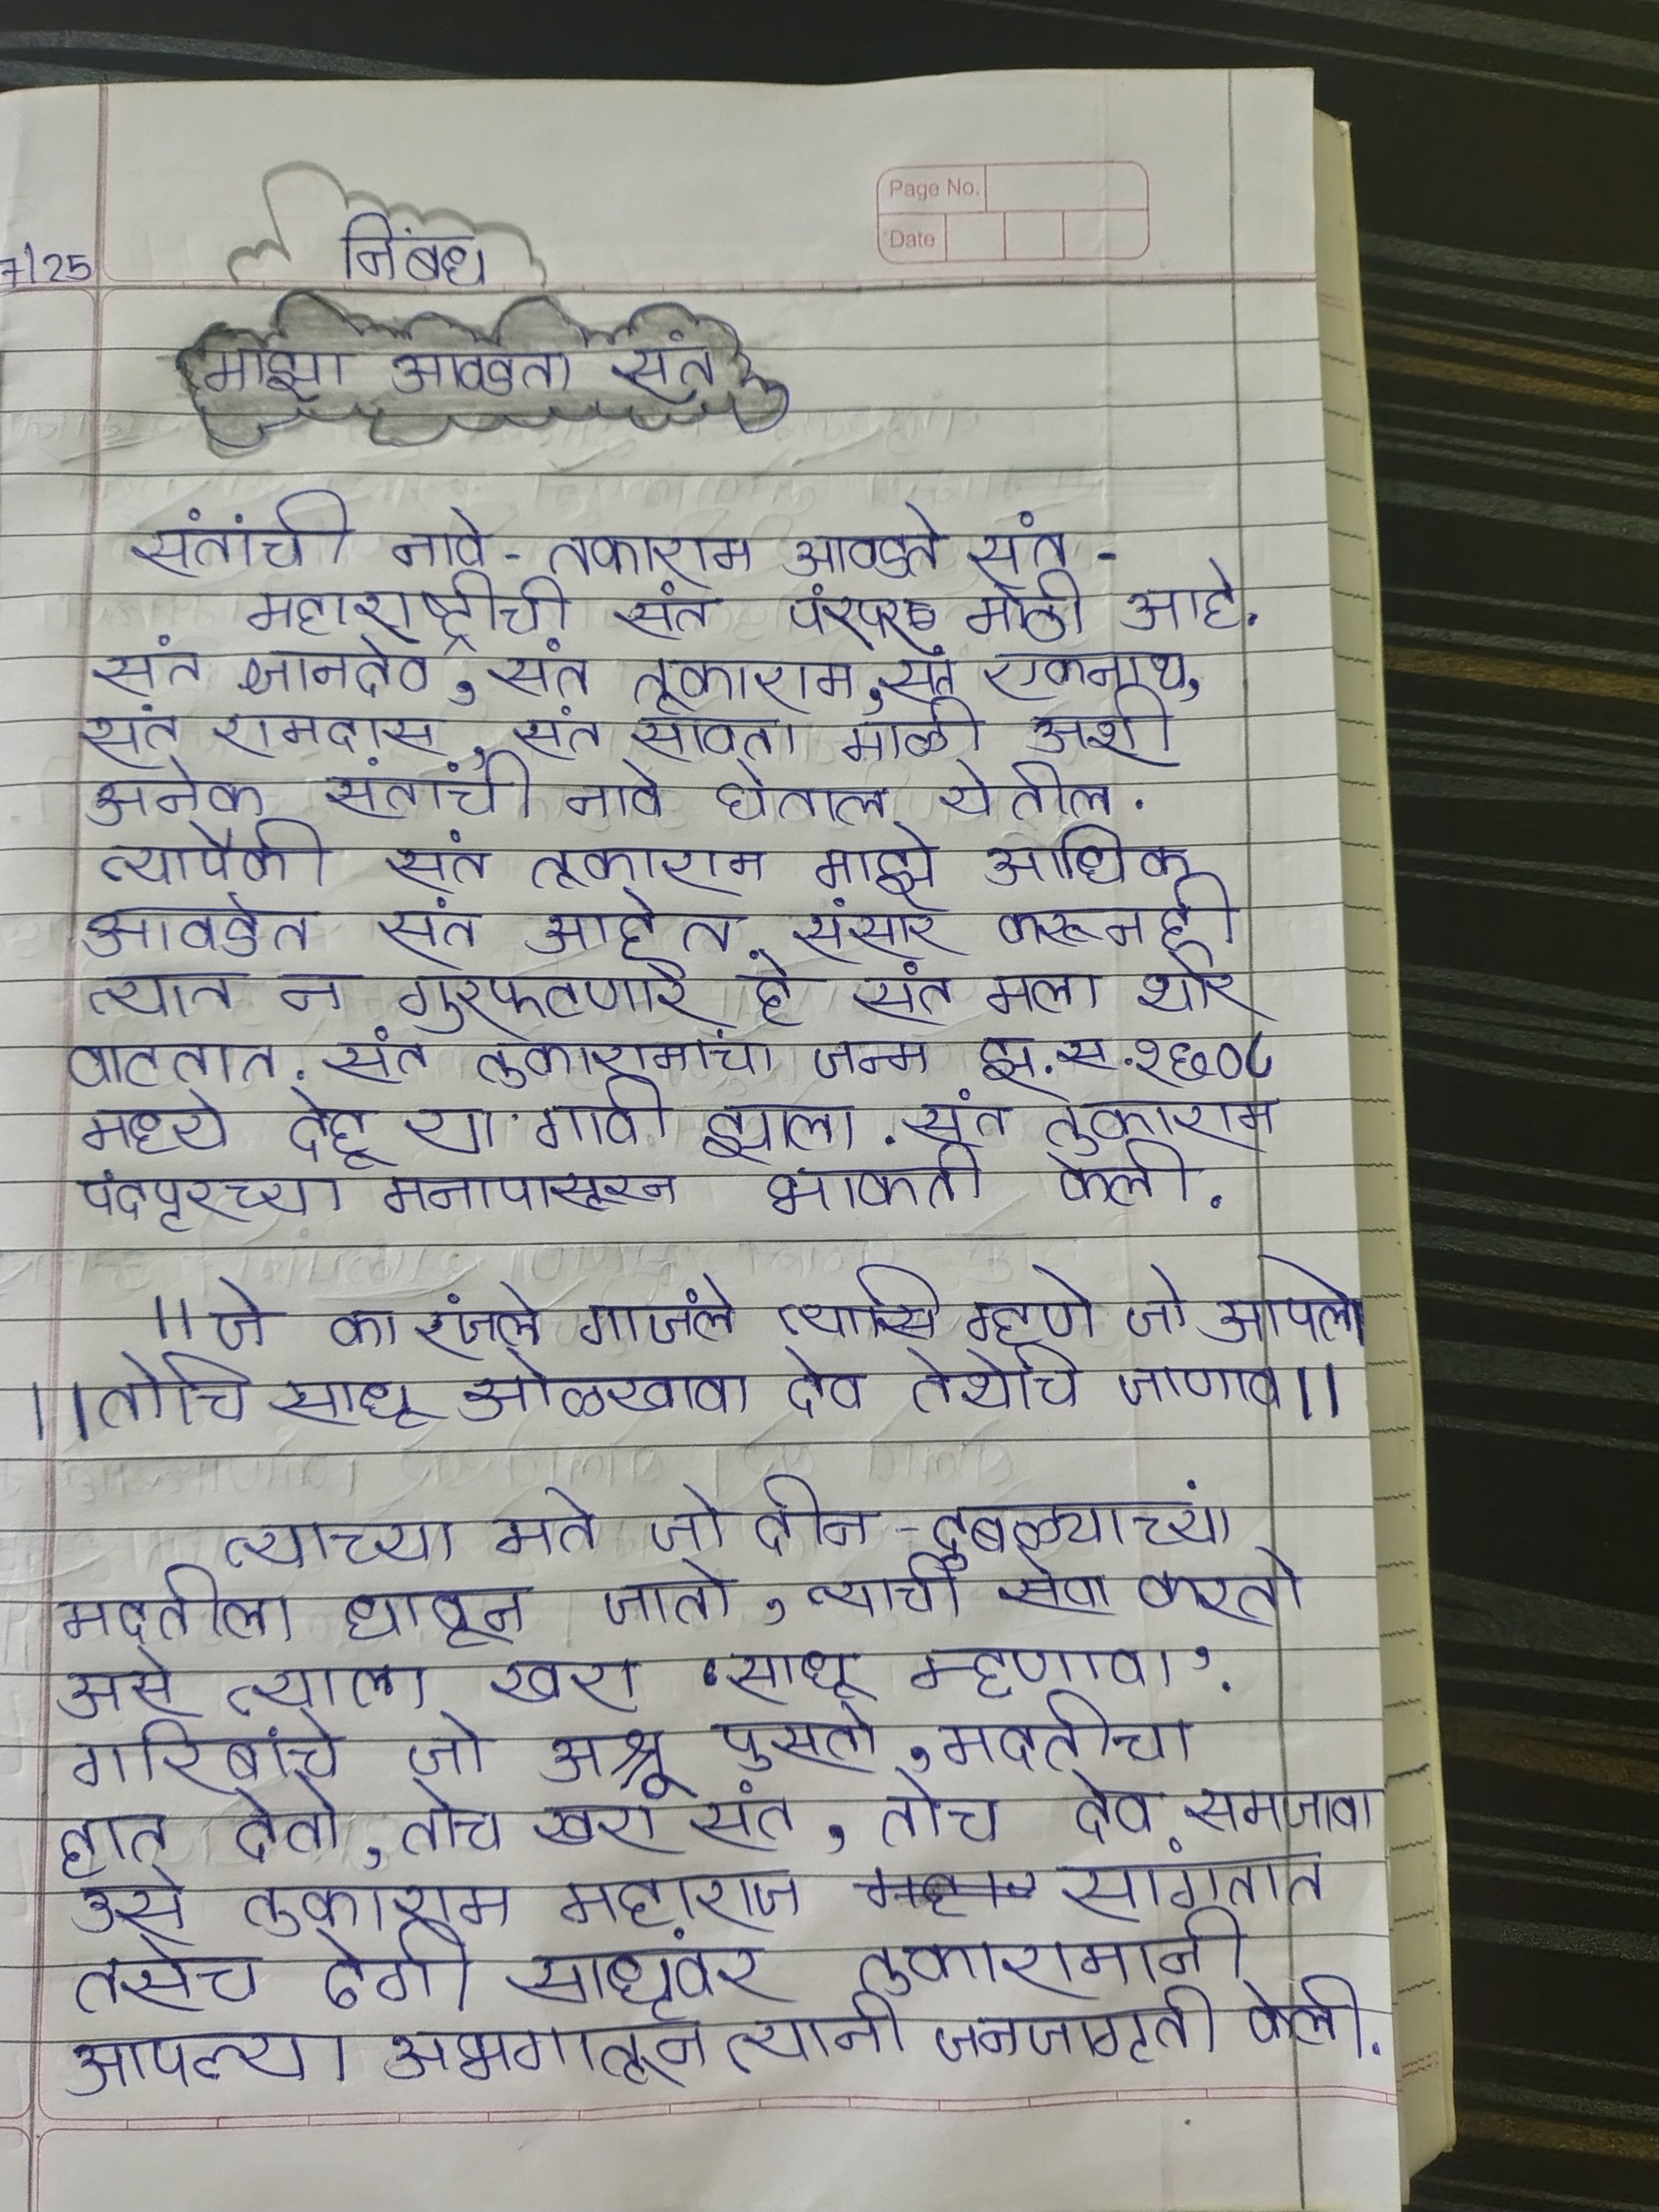 Page No.
Date
7/25
निबंध
माझा आवडता संत
संतांची नावे - तकाराम आवडते संत -
महाराष्ट्रीची संत पंरपरा मोठी आहे.
संत ज्ञानदेव, संत तूकाराम, संत एकनाथ,
संत रामदास, संत सावता माळी अशी
अनेक संतांची नावे घेताल येतील.
त्यापैकी संत तूकाराम माझे आधिक
आवडेत संत आहेत. संसार करूनही
त्यात न गुरफटणारे हे संत मला थोर
वाटतात. संत तुकारामांचा जन्म इ.स.१६०८
मध्ये देहू या गावी झाला. संत तुकाराम
पंढपूरच्या मनापासून भाकती केली.
||जे का रंजले गाजंले त्यासि म्हणे जो आपले
||तोचि साधू ओळखावा देव तेथेचि जाणाव||
त्याच्या मते जो दीन-दुबळ्याच्यां
मदतीला धावून जातो, त्याची सेवा करतो
असे त्याला खरा 'साधू म्हणावा'.
गारिबांचे जो अश्रू पुसतो, मदतीचा
हात देतो, तोच खरा संत, तोच देव समजावा
असे तुकाराम महाराज सांगतात
तसेच ढोगी साधूंवर तुकारामानी
आपल्या अभगातून त्यानी जनजागृती केली.